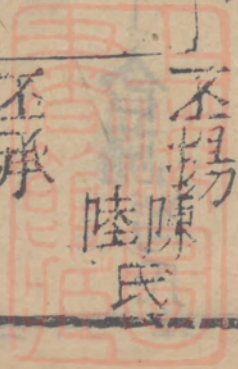 丕揚
陳陸氏
丕承